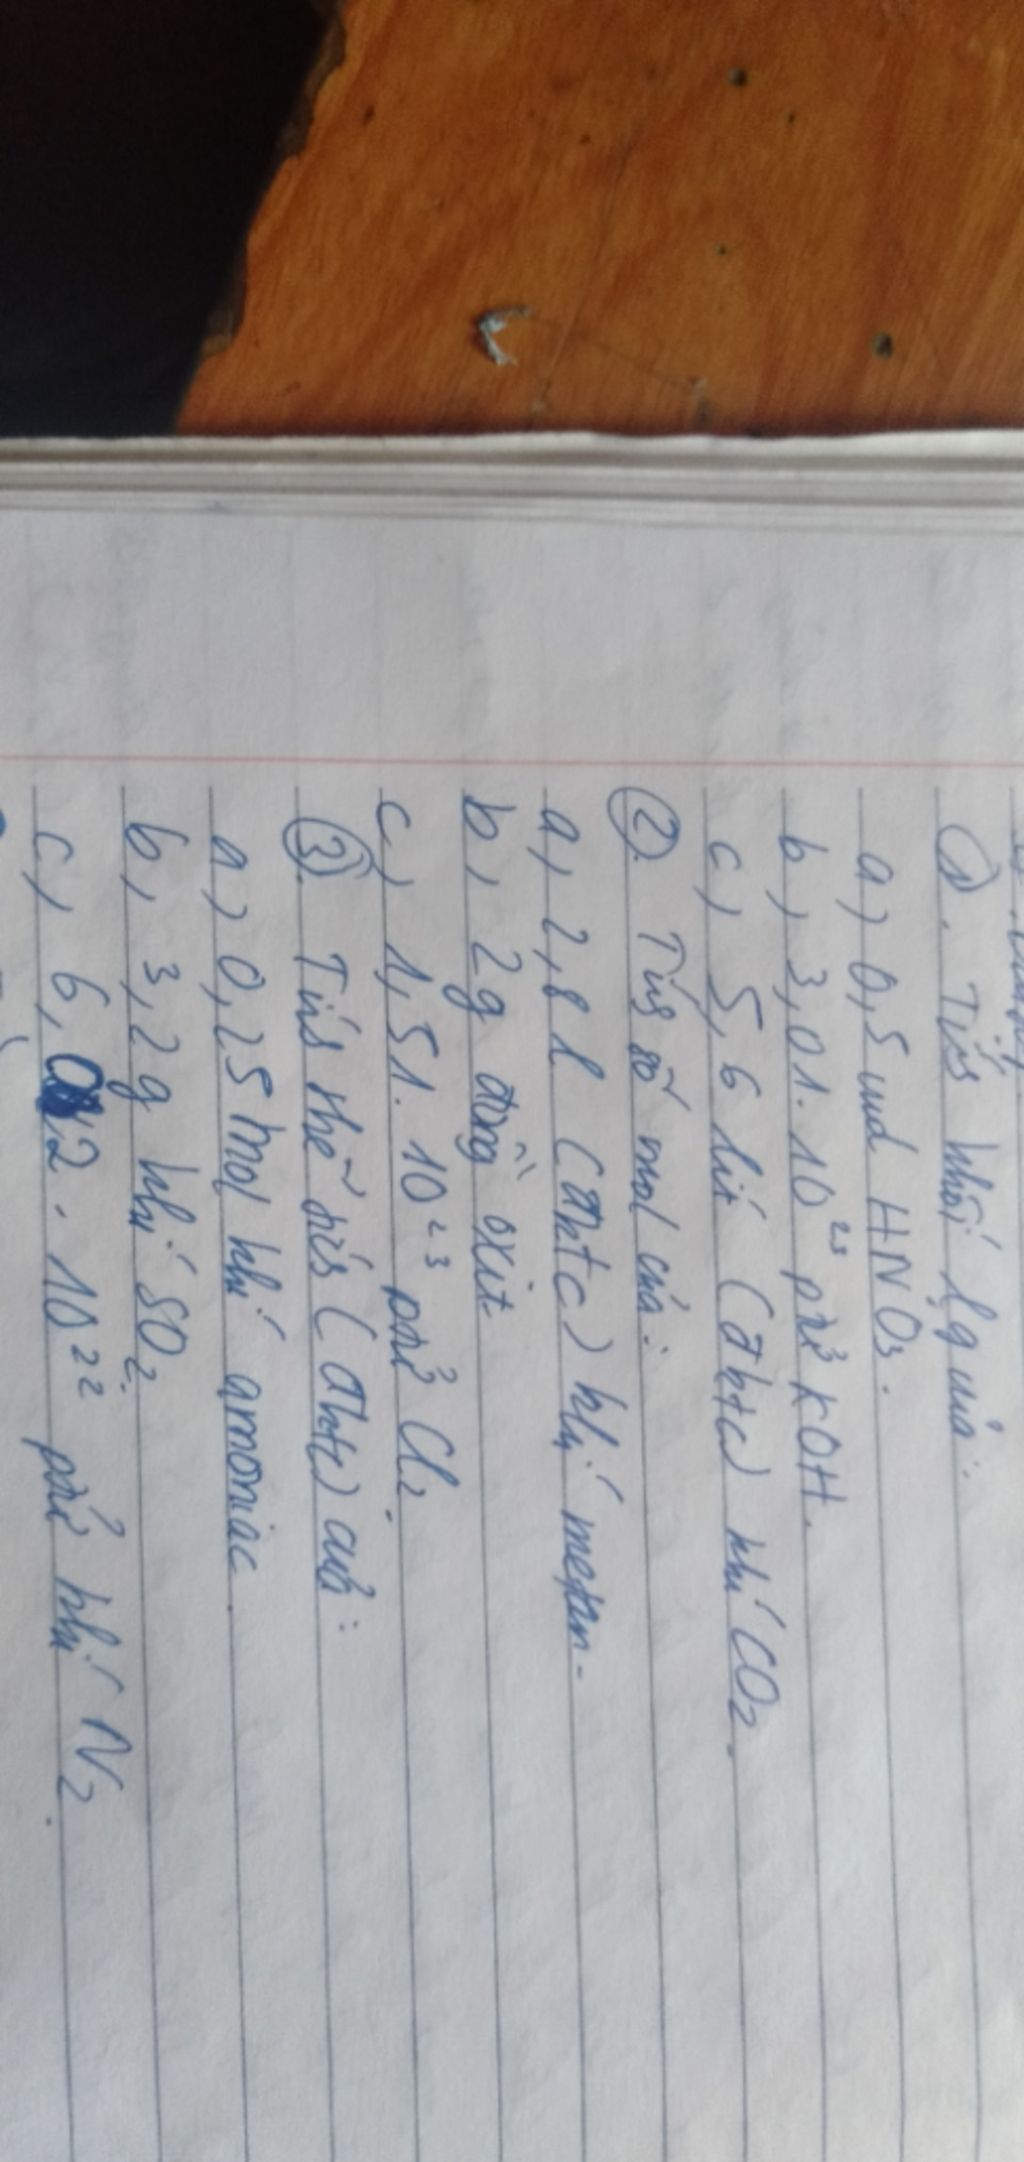 ①. Tính khối lg của:
a) 0,5 mol HNO3.
b) 3,01.10²³ ptử KOH.
c) 5,6 lít (đktc) khí CO2.
②. Tính số mol của:
a) 2,8 l (đktc) khí metan.
b) 2g đồng oxit.
c) 1,51.10²³ ptử Cl2.
③. Tính thể tích (đktc) của:
a) 0,25 mol khí amoniac.
b) 3,2g khí SO2.
c) 6,02.10²² ptử khí N2.